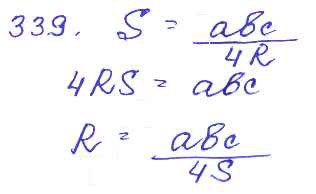 339. S = abc / 4R
4RS = abc
R = abc / 4S